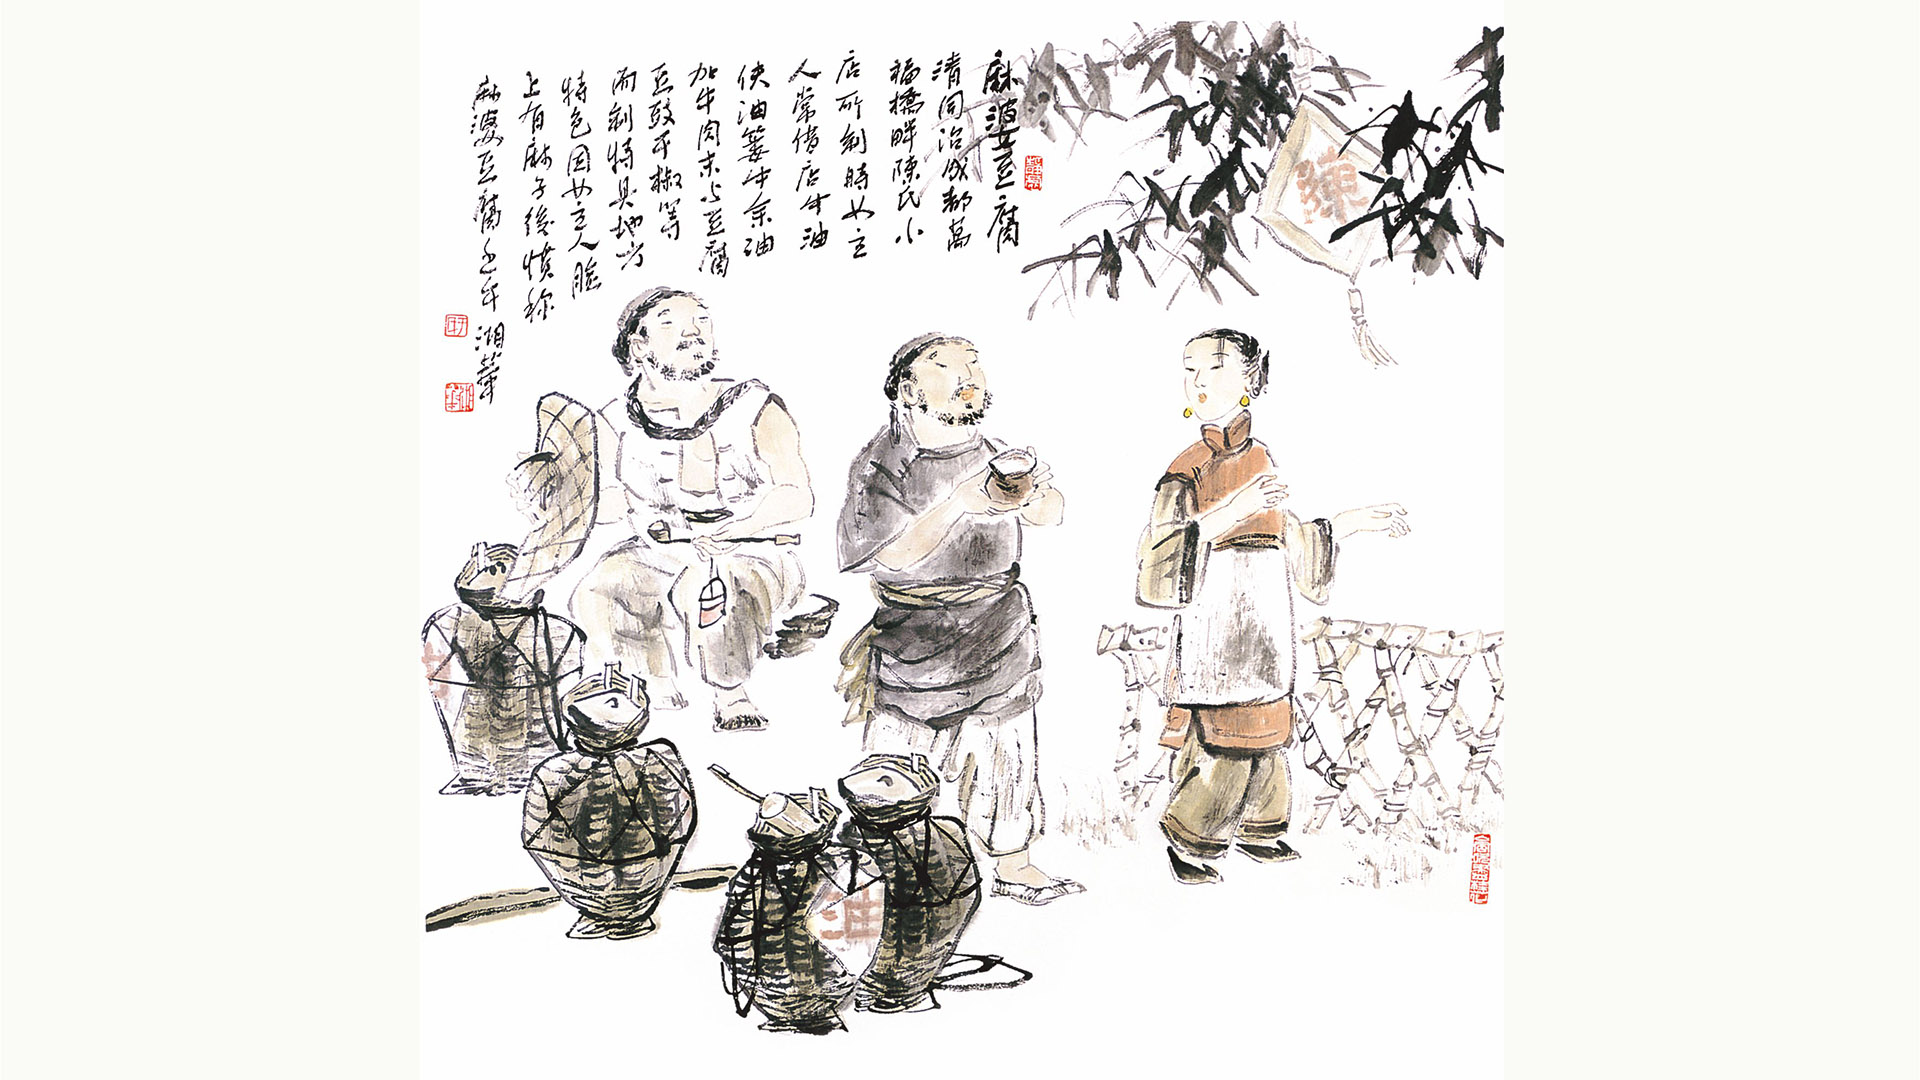 麻婆豆腐
清同治成都萬
福橋畔陳氏小
店所制時女主
人常借店中油
伕油簍中余油
加牛肉末与豆腐
豆豉干椒等
而制特具地方
特色因女主人臉
上有麻子後慣称
麻婆豆腐壬午 湘華
陳
油